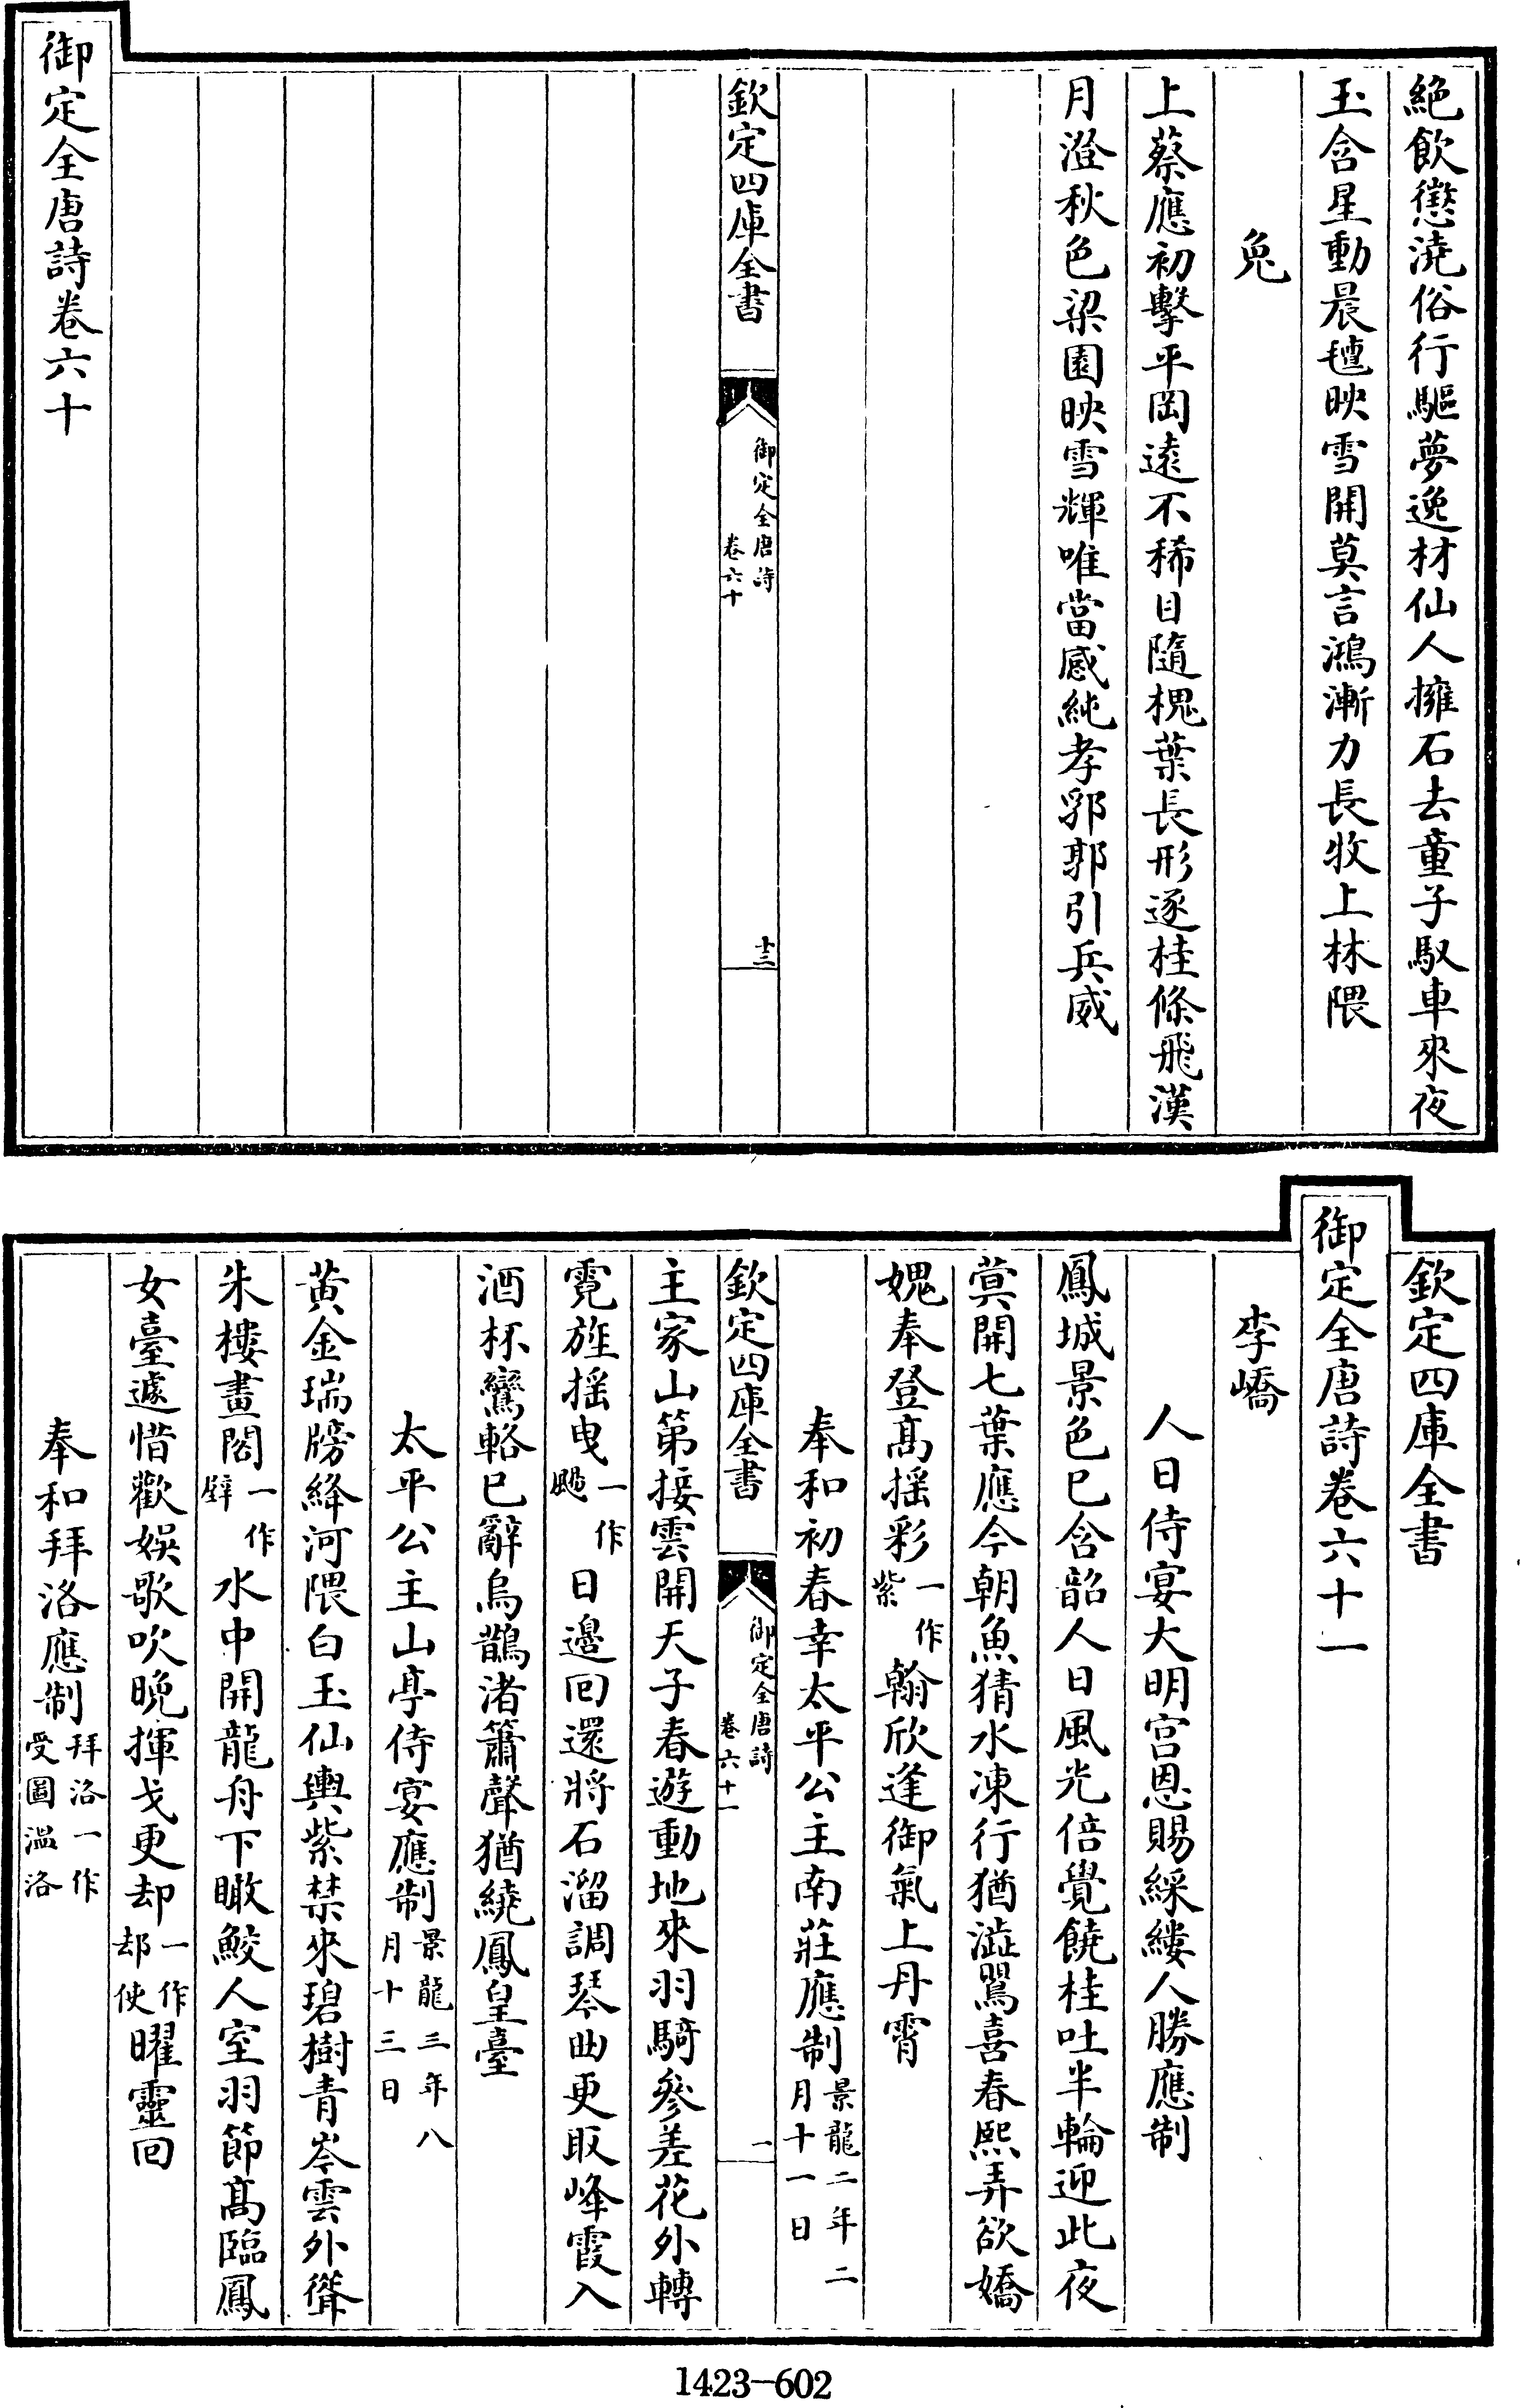 絶飲懲澆俗行驅夢逸材仙人擁石去童子馭車來夜
玉含星動晨氊映雪開莫言鴻漸力長牧上林隈
兔
上蔡應初擊平岡遠不稀目隨槐葉長形逐桂條飛漢
月澄秋色梁園映雪輝唯當感純孝郛郭引兵威
欽定四庫全書
御定全唐詩
卷六十
十三
御定全唐詩卷六十
欽定四庫全書
御定全唐詩卷六十一
李嶠
人日侍宴大明宫恩賜綵縷人勝應制
鳳城景色已含韶人日風光倍覺饒桂吐半輪迎此夜
蓂開七葉應今朝魚猜水凍行猶澁鸎喜春熙弄欲嬌
媿奉登髙揺彩一作紫翰欣逢御氣上丹霄
奉和初春幸太平公主南莊應制景龍二年二月十一日
欽定四庫全書
御定全唐詩
卷六十一
一
主家山第接雲開天子春遊動地來羽騎參差花外轉
霓旌揺曳一作颺日邉回還將石溜調琴曲更取峰霞入
酒杯鸞輅已辭烏鵲渚簫聲猶繞鳳皇臺
太平公主山亭侍宴應制景龍三年八月十三日
黄金瑞牓絳河隈白玉仙輿紫禁來碧樹青岑雲外聳
朱樓畫閣一作壁水中開龍舟下瞰鮫人室羽節髙臨鳳
女臺遽惜歡娱歌吹晚揮戈更却一作却使曜靈回
奉和拜洛應制拜洛一作受圖温洛
1423-602